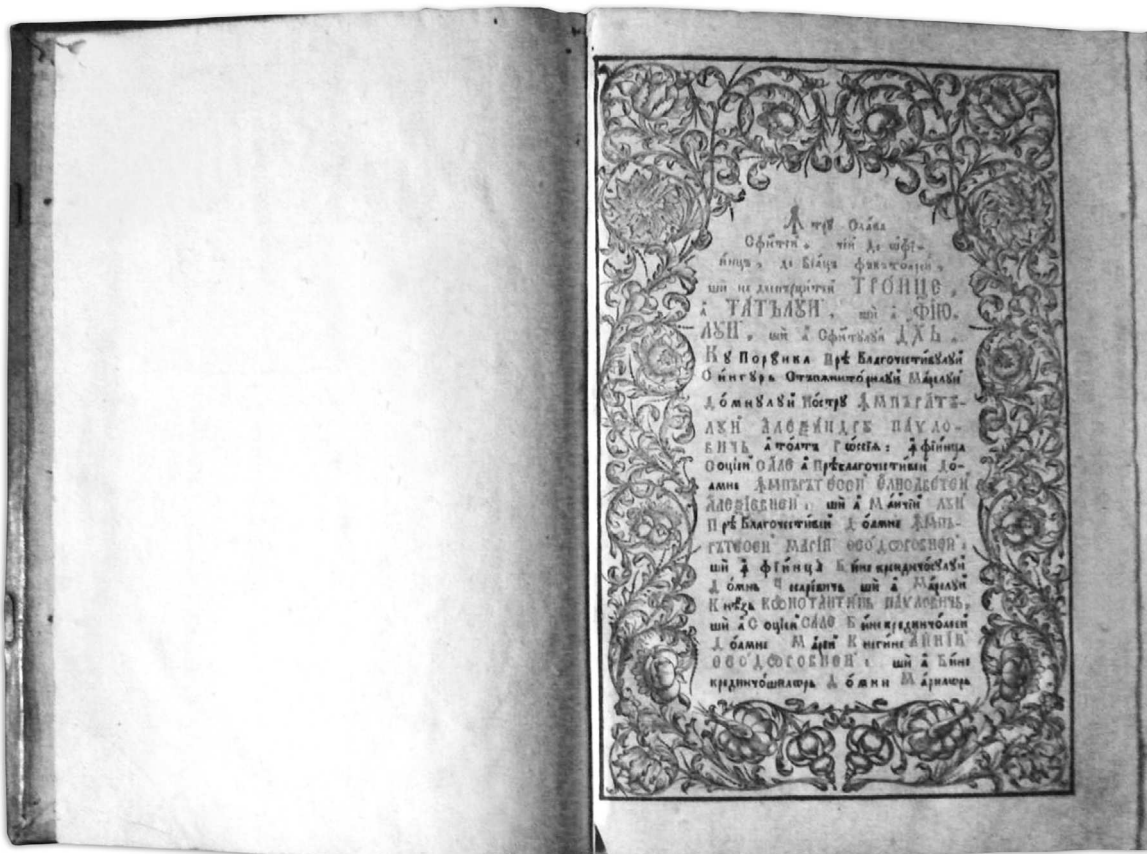 Ꙟтрꙋ Слава
Сфи́нтеи, чеи́ де ѡ҆фїи-
и҆нцъ, де вїа́цъ фъкъто́рїеи,
ши не деспърци́теи ТРО́ИЦЕ,
а ТА́ТЪЛꙊИ, ши а ФІ́Ю-
ЛꙊИ, ши а Сфи́нтꙋлꙋи ДХЪ.
Кꙋ Порꙋнка Прѣ Благочести́вꙋлꙋи
Сингꙋръ Стъпжнито́рюлꙋи Ма́релꙋи
До́мнꙋлꙋи Но́стрꙋ ꙞМПЪРА́ТꙊ-
ЛꙊИ АЛЕѮА́НДРꙊ ПА́ѴЛО-
ВИЧЬ а то́атъ Рѡссїа: а фїи́нца
Соцїеи СА́ЛЕ а Прѣблагочести́веи До́-
амне ꙞМПЪРЪТЕ́СЕИ ЕЛИСАВЕ́ТЕИ
АЛЕѮІЕ́ВНЕИ: ши а Ма́ичїи ЛꙊИ
Прѣ Благочести́веи До́амне ꙞМПЪ-
РЪТЕ́СЕИ МАРІ́ЕИ ѲЕО́ДѠРОВНЕИ:
ши а фїи́нца Би́не креди́нчосꙋлꙋи
До́мнь Цесаре́вичь ши а Ма́релꙋи
Кнѣзь КѠНСТАНТИ́НЬ ПА́ѴЛОВИЧЬ,
ши а Соцїеи СА́ЛЕ Би́не креди́нчоасеи
До́амне Ма́реи Кнеги́не А́ННІИ
ѲЕО́ДѠРОВНЕИ: ши а Би́не
креди́нчошилѡръ До́мни Ма́рилѡръ